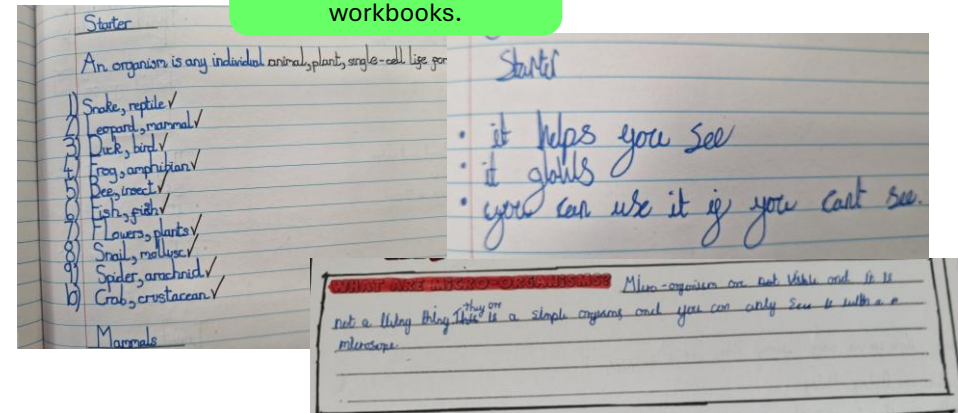 workbooks.
Starter
An organism is any individual animal, plant, single-cell life for
1) Snake, reptile ✓
2) Leopard, mammal ✓
3) Duck, bird ✓
4) Frog, amphibian ✓
5) Bee, insect ✓
6) Fish, fish ✓
7) Flowers, plants ✓
8) Snail, mollusc ✓
9) Spider, arachnid ✓
10) Crab, crustacean ✓
Mammals
Starter
• it helps you see
• it
• you can use it if you cant see.
WHAT ARE MICRO-ORGANISMS? Micro-organism are not visble and it is
they are
not a living thing. This is a simple orgasms and you can only see it with a
microscope.